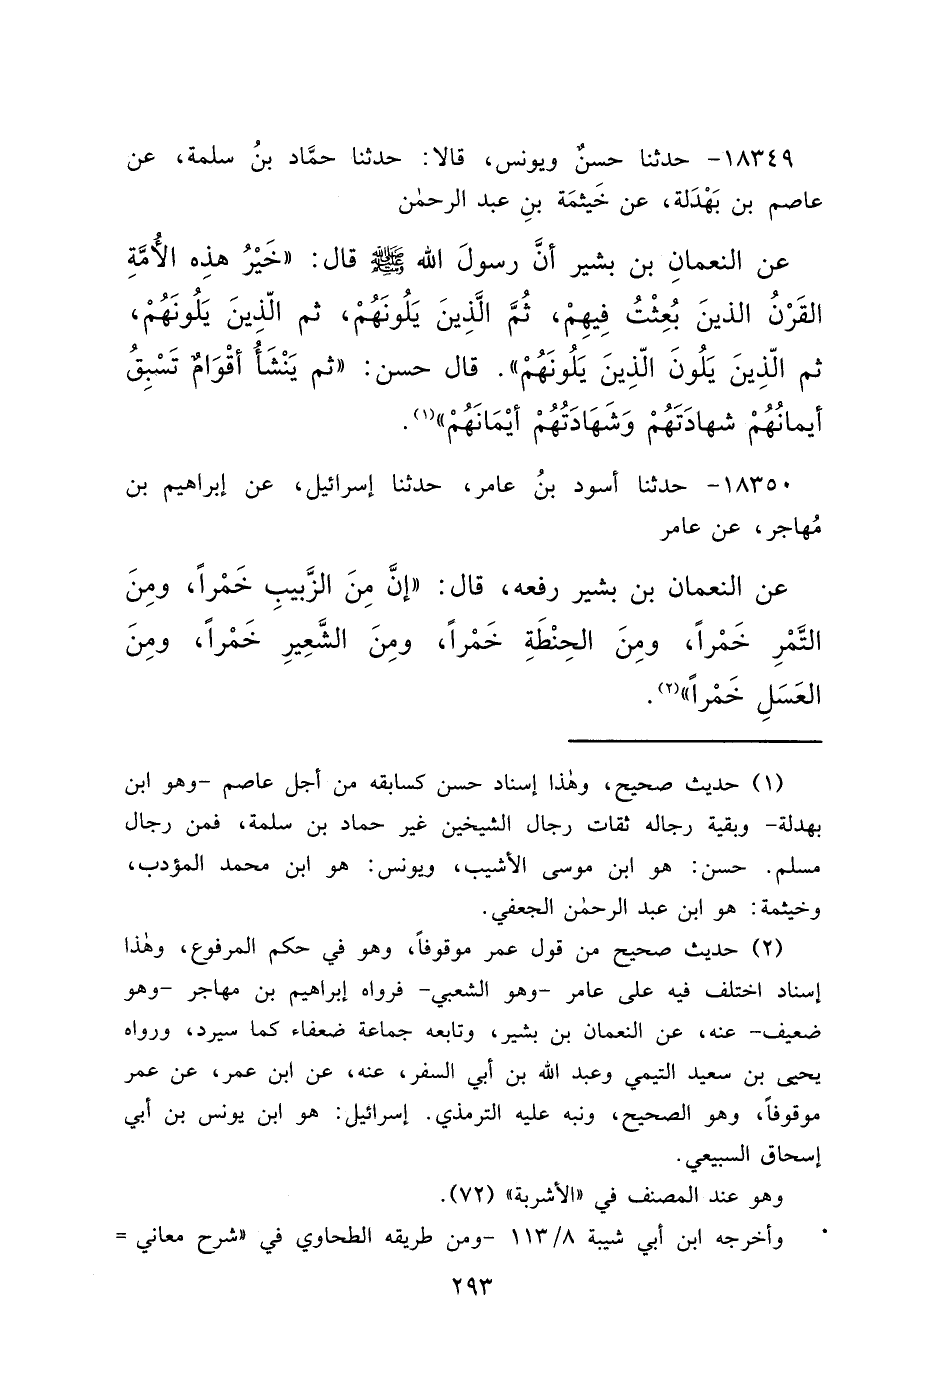 ١٨٣٤٩- حدثنا حسنٌ ويونس، قالا: حدثنا حمَّاد بنُ سلمة، عن
عاصم بن بَهْدَلة، عن خَيثمَة بنِ عبد الرحمٰن
عن النعمانِ بن بشير أنَّ رسولَ الله ﷺ قال: «خَيْرُ هذِه الأُمَّةِ
القَرْنُ الذينَ بُعِثْتُ فِيهِمْ، ثُمَّ الَّذِينَ يَلُونَهُمْ، ثم الّذِينَ يَلُونَهُمْ،
ثم الّذِينَ يَلُونَ الّذِينَ يَلُونَهُمْ». قال حسن: «ثم يَنْشَأُ أقْوَامٌ تَسْبِقُ
أيمانُهُمْ شهادَتَهُمْ وَشَهَادَتُهُمْ أيْمَانَهُمْ»(١).
١٨٣٥٠- حدثنا أسود بنُ عامر، حدثنا إسرائيل، عن إبراهيم بن
مُهاجر، عن عامر
عن النعمان بن بشير رفعه، قال: «إنَّ مِنَ الزَّبيبِ خَمْراً، ومِنَ
التَّمْرِ خَمْراً، ومِنَ الحِنْطَةِ خَمْراً، ومِنَ الشَّعِيرِ خَمْراً، ومِنَ
العَسَلِ خَمْراً»(٢).
(١) حديث صحيح، وهٰذا إسناد حسن كسابقه من أجل عاصم -وهو ابن
بهدلة- وبقية رجاله ثقات رجال الشيخين غير حماد بن سلمة، فمن رجال
مسلم. حسن: هو ابن موسى الأشيب، ويونس: هو ابن محمد المؤدب،
وخيثمة: هو ابن عبد الرحمٰن الجعفي.
(٢) حديث صحيح من قول عمر موقوفاً، وهو في حكم المرفوع، وهٰذا
إسناد اختلف فيه على عامر -وهو الشعبي- فرواه إبراهيم بن مهاجر -وهو
ضعيف- عنه، عن النعمان بن بشير، وتابعه جماعة ضعفاء كما سيرد، ورواه
يحيى بن سعيد التيمي وعبد الله بن أبي السفر، عنه، عن ابن عمر، عن عمر
موقوفاً، وهو الصحيح، ونبه عليه الترمذي. إسرائيل: هو ابن يونس بن أبي
إسحاق السبيعي.
وهو عند المصنف في «الأشربة» (٧٢).
وأخرجه ابن أبي شيبة ١١٣/٨ -ومن طريقه الطحاوي في «شرح معاني =
٢٩٣